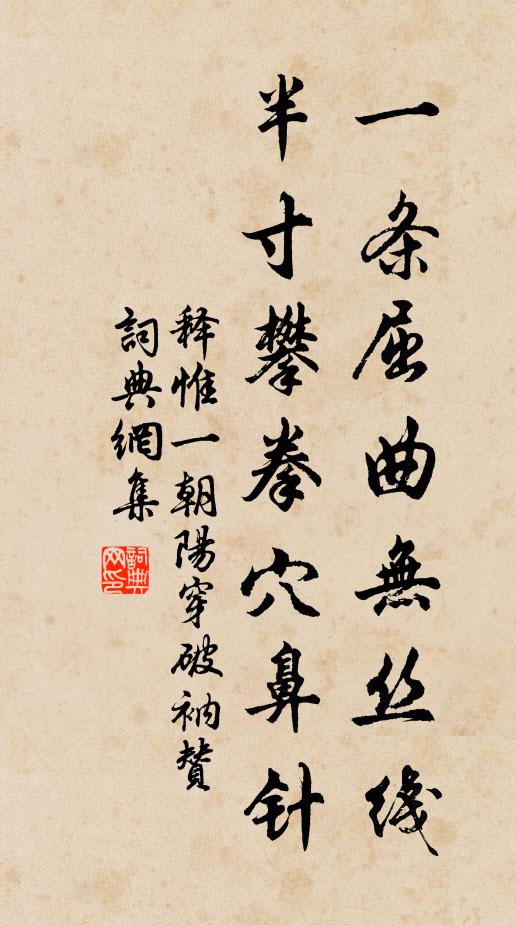 一条屈曲無丝线
半寸攀拳穴鼻针
释惟一朝陽穿破衲贊
詞典網集
詞典网印